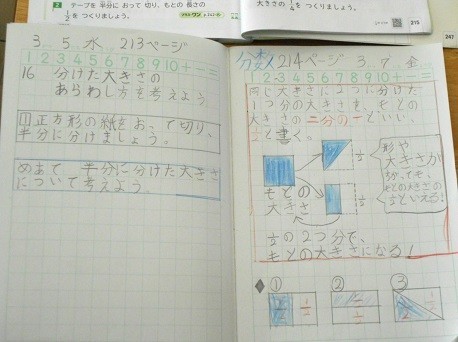 2 テープを 半分に おって 切り、もとの 長さの
1/2を つくりましょう。
大きさの 1/4を つくりましょう。
215
247
3..5 水 213ページ
1 2 3 4 5 6 7 8 9 10 + − =
16 分けた大きさの
あらわし方を考えよう
① 正方形の紙をおって切り、
半分に分けましょう。
めあて 半分に分けた大きさ
について考えよう。
分数 214ページ 3..7 金
1 2 3 4 5 6 7 8 9 10 + − =
同じ大きさに2つに分けた
1つ分の大きさを、もとの
大きさの二分の一といい、
1/2と書く。
1/2
もとの
大きさ
1/2
形や
大きさが
ちがっても、
もとの大きさの
1/2といえる!
1/2の2つ分で、
もとの大きさになる!
① ② ③
1/2 1/2